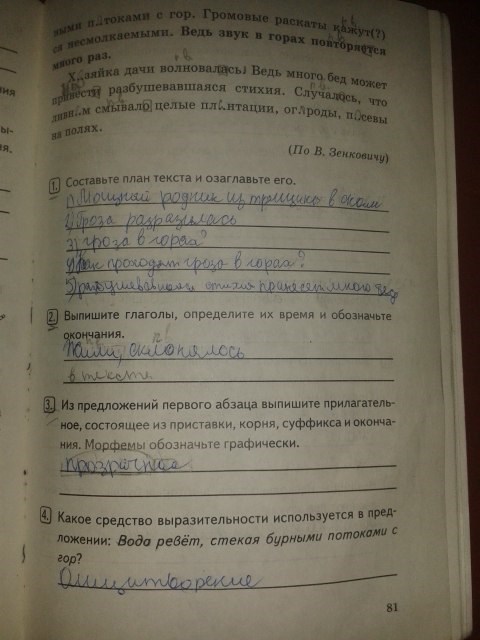 ными потоками с гор. Громовые раскаты кажут(?)
ся несмолкаемыми. Ведь звук в горах повторяется
много раз.
Хозяйка дачи волновалась. Ведь много бед может
принести разбушевавшаяся стихия. Случалось, что
ливнем смывало целые плантации, огороды, посевы
на полях.
(По В. Зенковичу)
1. Составьте план текста и озаглавьте его.
1) Мощный родник из трещины в скале
2) Гроза разразилась
3) Гроза в горах?
4) Как проходит гроза в горах?
5) стихия много бед
2. Выпишите глаголы, определите их время и обозначьте
окончания.
склонялось
в тексте
3. Из предложений первого абзаца выпишите прилагатель-
ное, состоящее из приставки, корня, суффикса и оконча-
ния. Морфемы обозначьте графически.
прозрачное
4. Какое средство выразительности используется в пред-
ложении: Вода ревёт, стекая бурными потоками с
гор?
Олицитворение
81